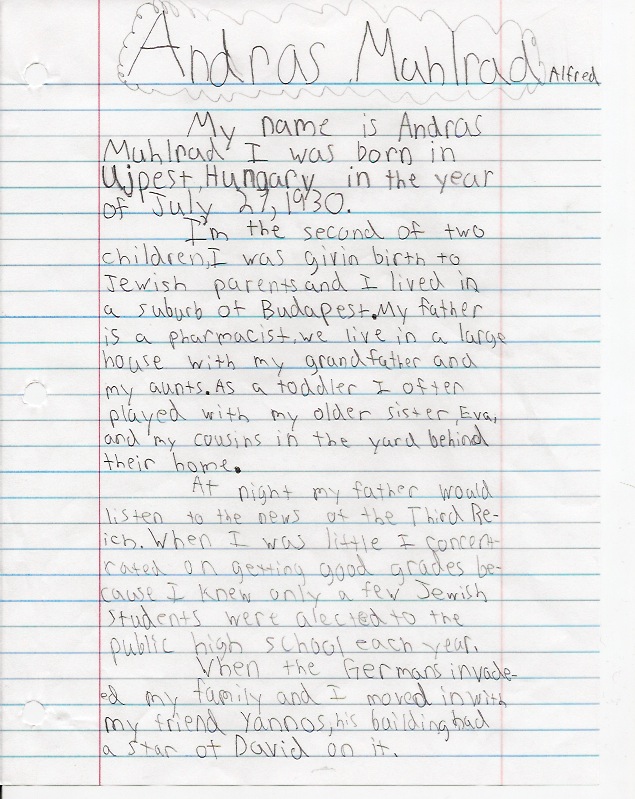 Andras Muhlrad Alfred
My name is Andras
Muhlrad I was born in
Ujpest, Hungary in the year
of July 27, 1930.
I'm the second of two
children, I was givin birth to
Jewish parents and I lived in
a suburb of Budapest. My father
is a pharmacist. we live in a large
house with my grandfather and
my aunts. As a toddler I often
played with my older sister, Eva,
and my cousins in the yard behind
their home.
At night my father would
listen to the news of the Third Re-
ich. When I was little I concent-
rated on getting good grades be-
cause I knew only a few Jewish
students were alected to the
public high school each year.
When the Germans invade-
ed my family and I moved in with
my friend Yannos, his building had
a star of David on it.